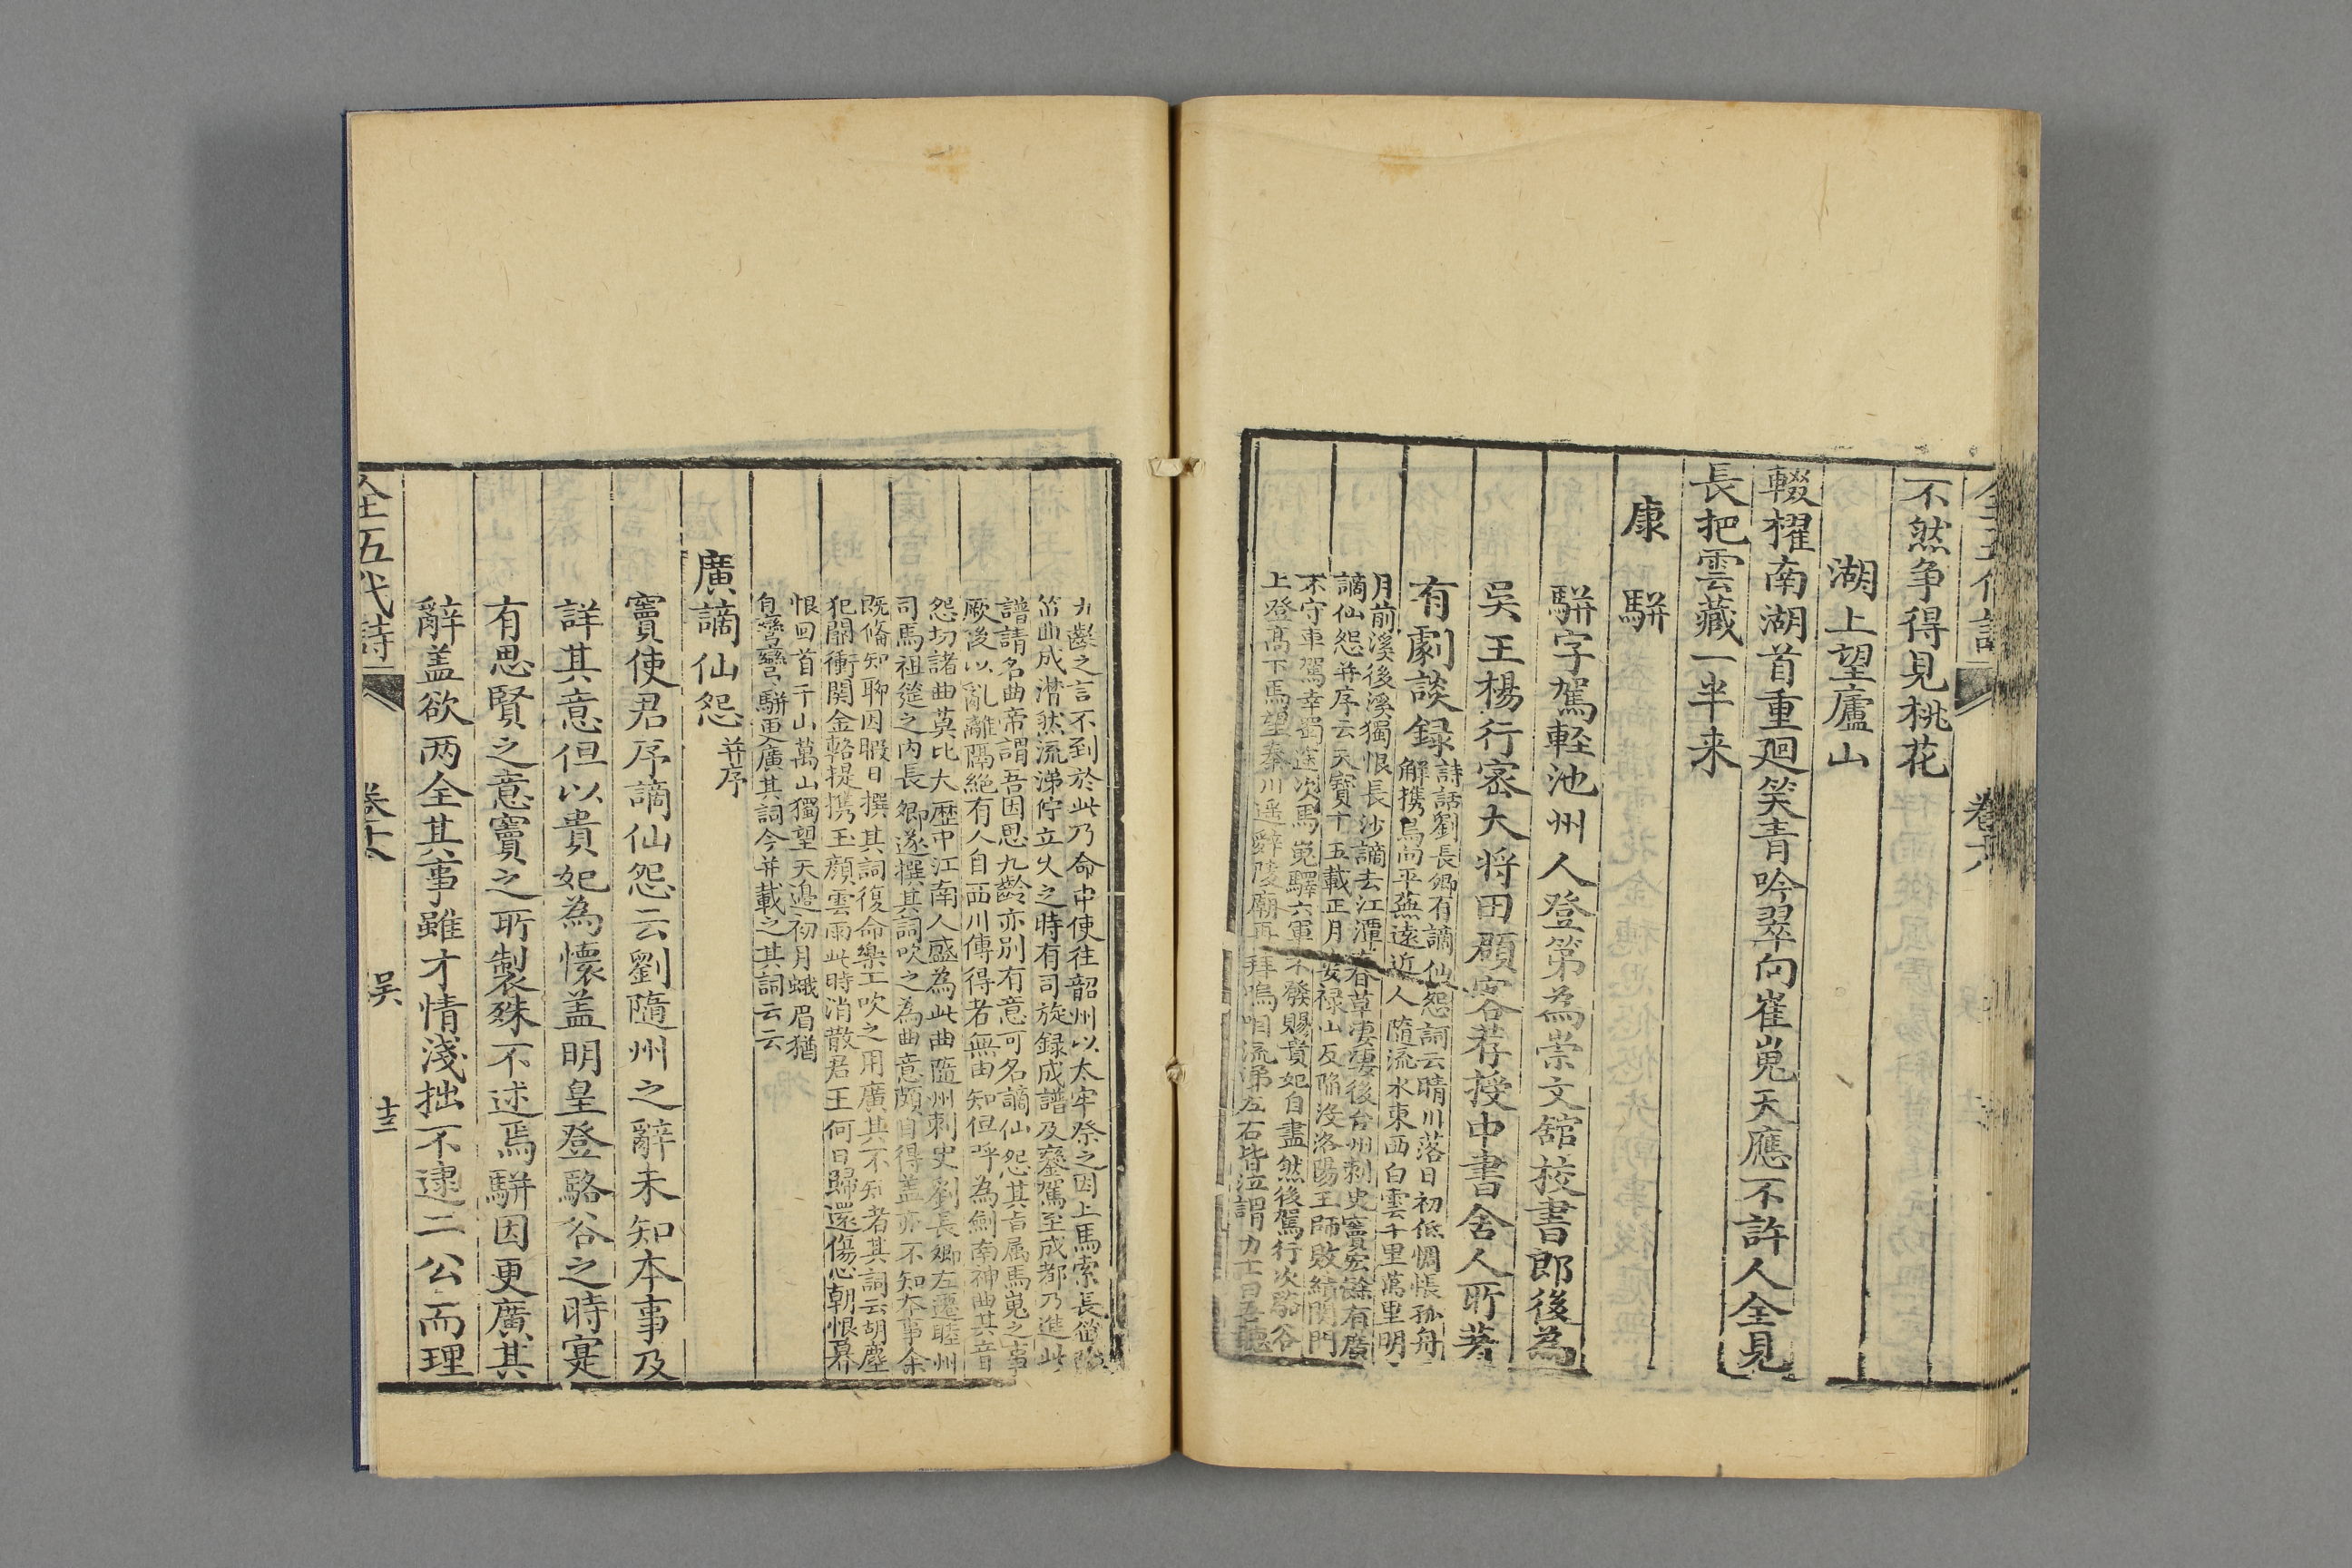 不然争得見桃花
湖上望廬山
輟櫂南湖首重廻笑青吟翠向崔嵬天應不許人全見
長把雲藏一半来
康駢
駢字駕輕池州人登第為崇文舘挍書郎後為
吳王楊行密大将田頵客荐授中書舍人所著
有劇談録
詩話劉長卿有謫仙怨詞云晴川落日初低惆悵孤舟
解携鳥向平蕪遠近人隨流水東西白雲千里萬里明
月前溪後溪獨恨長沙謫去江潭春草凄凄後台州刺史竇宏餘有廣
謫仙怨并序云天寶十五載正月安禄山反陷没洛陽王師敗績関門
不守車駕幸蜀途次馬嵬驛六軍不發賜貴妃自盡然後駕行次駱谷
上登髙下馬望秦川遥辭陵廟再拜嗚咽流涕左右皆泣謂力士曰吾聴
九齡之言不到於此乃命中使往韶州以太牢祭之因上馬索長笛
笛曲成潸然流涕佇立久之時有司旋録成譜及鑾駕至成都乃進此
譜請名曲帝謂吾因思九齡亦别有意可名謫仙怨其旨属馬嵬之事
厥後以乱離隔絶有人自西川傳得者無由知但呼為劍南神曲其音
怨切諸曲莫比大厯中江南人盛為此曲隨州刺史劉長卿左遷睦州
司馬祖筵之内長卿遂撰其詞吹之為曲意頗自得盖亦不知本事余
既俻知聊因暇日撰其詞復命樂工吹之用廣其不知者其詞云胡塵
犯闕衝関金輅提携玉顔雲雨此時消散君王何日歸還傷心朝恨暮
恨回首千山萬山獨望天邉初月蛾眉猶
自彎彎駢更廣其詞今并載之其詞云云
廣謫仙怨并序
竇使君序謫仙怨云劉隨州之辭未知本事及
詳其意但以貴妃為懷盖明皇登駱谷之時寔
有思賢之意竇之所製殊不述焉駢因更廣其
辭盖欲两全其事雖才情淺拙不逮二公而理
全五代詩
吳
十三